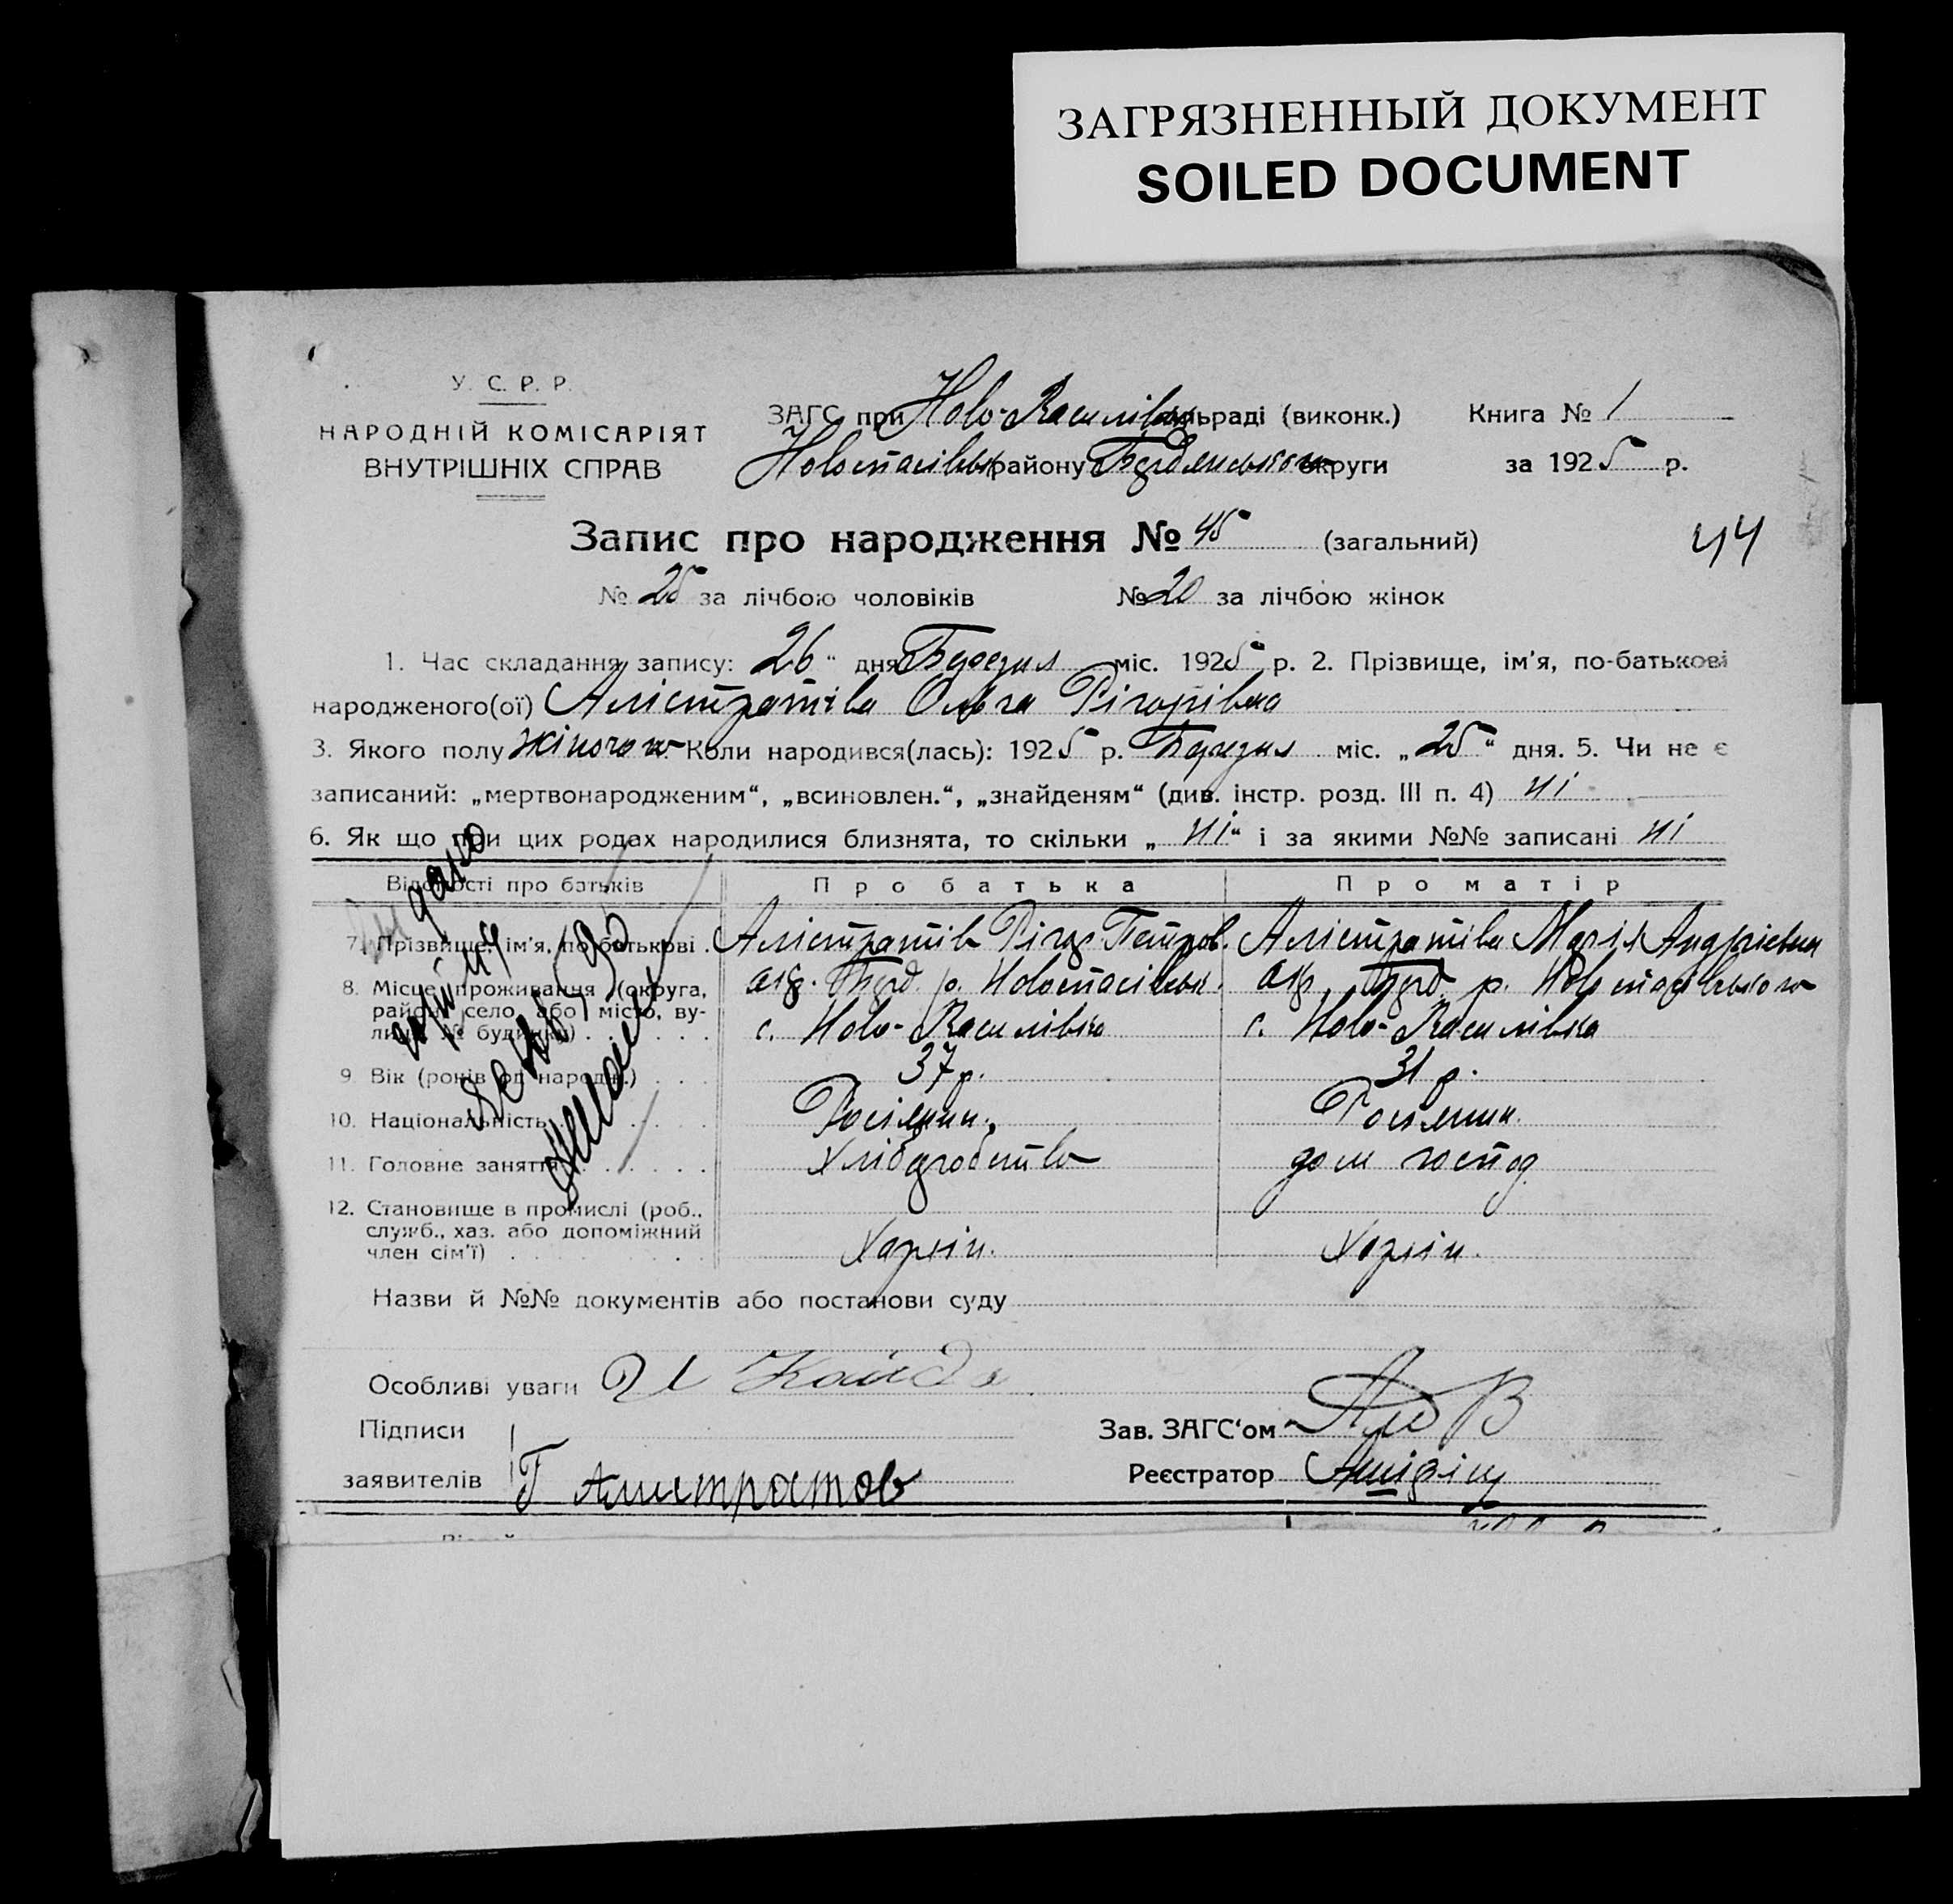 ЗАГРЯЗНЕННЫЙ ДОКУМЕНТ
SOILED DOCUMENT
У. С. Р. Р.
НАРОДНІЙ КОМІСАРІЯТ
ВНУТРІШНІХ СПРАВ
ЗАГС при Ново-Василівськ сільраді (виконк.)
Новоспасівськ району Бердянського округи
Книга № 1
за 1925 р.
Запис про народження № 45 (загальний)
44
№ 25 за лічбою чоловіків № 20 за лічбою жінок
1. Час складання запису: 26 " дня Березня міс. 1925 р. 2. Прізвище, ім'я, по-батькові
народженого(ої) Алістратіва Ольга Грігорівна
3. Якого полу жіночого Коли народився(лась): 1925 р. Березня міс. „ 25 " дня. 5. Чи не є
записаний: „мертвонародженим", „всиновлен.", „знайденям" (див. інстр. розд. III п. 4) ні
6. Як що при цих родах народилися близнята, то скільки „ ні " і за якими №№ записані ні
Відомості про батьків Про батька Про матір
7. Прізвище, ім'я, по батькові . Алістратів Гріг. Петров. Алістратіва Марія Андрієвна
8. Місце проживання (округа, район, село, або місто, вулиця, № будинку) . . . . . .
окр. Берд. р. Новоспасівськ. окр. Берд. р. Новоспасівського
с. Ново-Василівка с. Ново-Василівка
9. Вік (років од народж.) . . . 37 р. 31 р.
10. Національність . . . . . Росіянин. Росіянин.
11. Головне заняття . . . . . Хліборобство дом господ.
12. Становище в промислі (роб., служб., хаз. або допоміжний член сім'ї) . . . .
Хазяін. Хазяін.
Назви й №№ документів або постанови суду
Особливі уваги
Підписи
заявителів Г Алистратов
Зав. ЗАГС'ом
Реєстратор